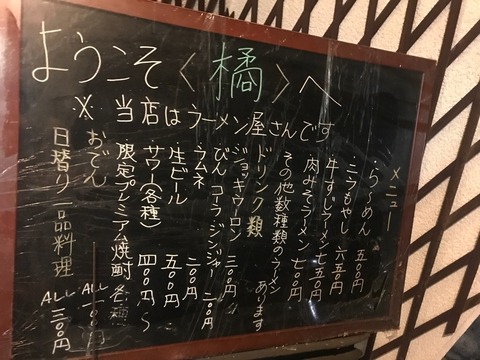 ようこそ〈橘〉へ
※当店はラーメン屋さんです
メニュー
・らーめん 五〇〇円
・ニラもやし 六五〇円
・牛すじラーメン 七五〇円
・肉みそラーメン 七〇〇円
その他数種類のラーメンあります
ドリンク類
ジョッキウーロン 三〇〇円
びんコーラ・ジンジャー 二〇〇円
ラムネ 二〇〇円
生ビール 五〇〇円
サワー(各種) 四〇〇円〜
限定プレミアム焼酎各種
おでん ALL 一〇〇円
日替り一品料理 ALL 三〇〇円